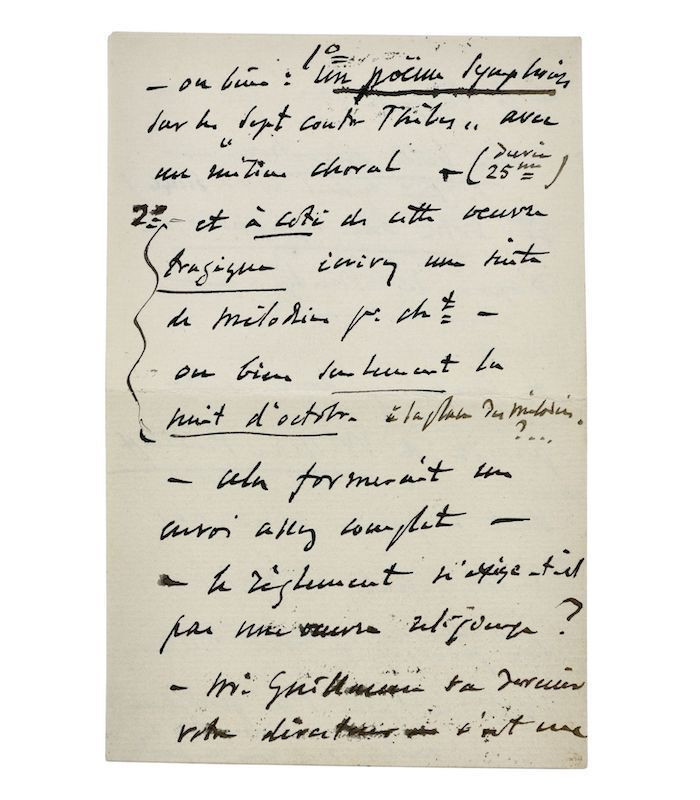 1º
— ou bien : Un poëme symphoniq
sur les "Sept contre Thèbes" avec
un final choral — (durée
25 m)
2º — et à coté de cette oeuvre
tragique écrivez une suite
de mélodies pr cht —
ou bien seulement la
nuit d'octobre à la place des mélodies.
?...
— cela formerait un
envoi assez complet —
— le règlement n'exige-t-il
pas une oeuvre religieuse ?
— Mr. Guillaume sa dernier
votre directeur c'est une